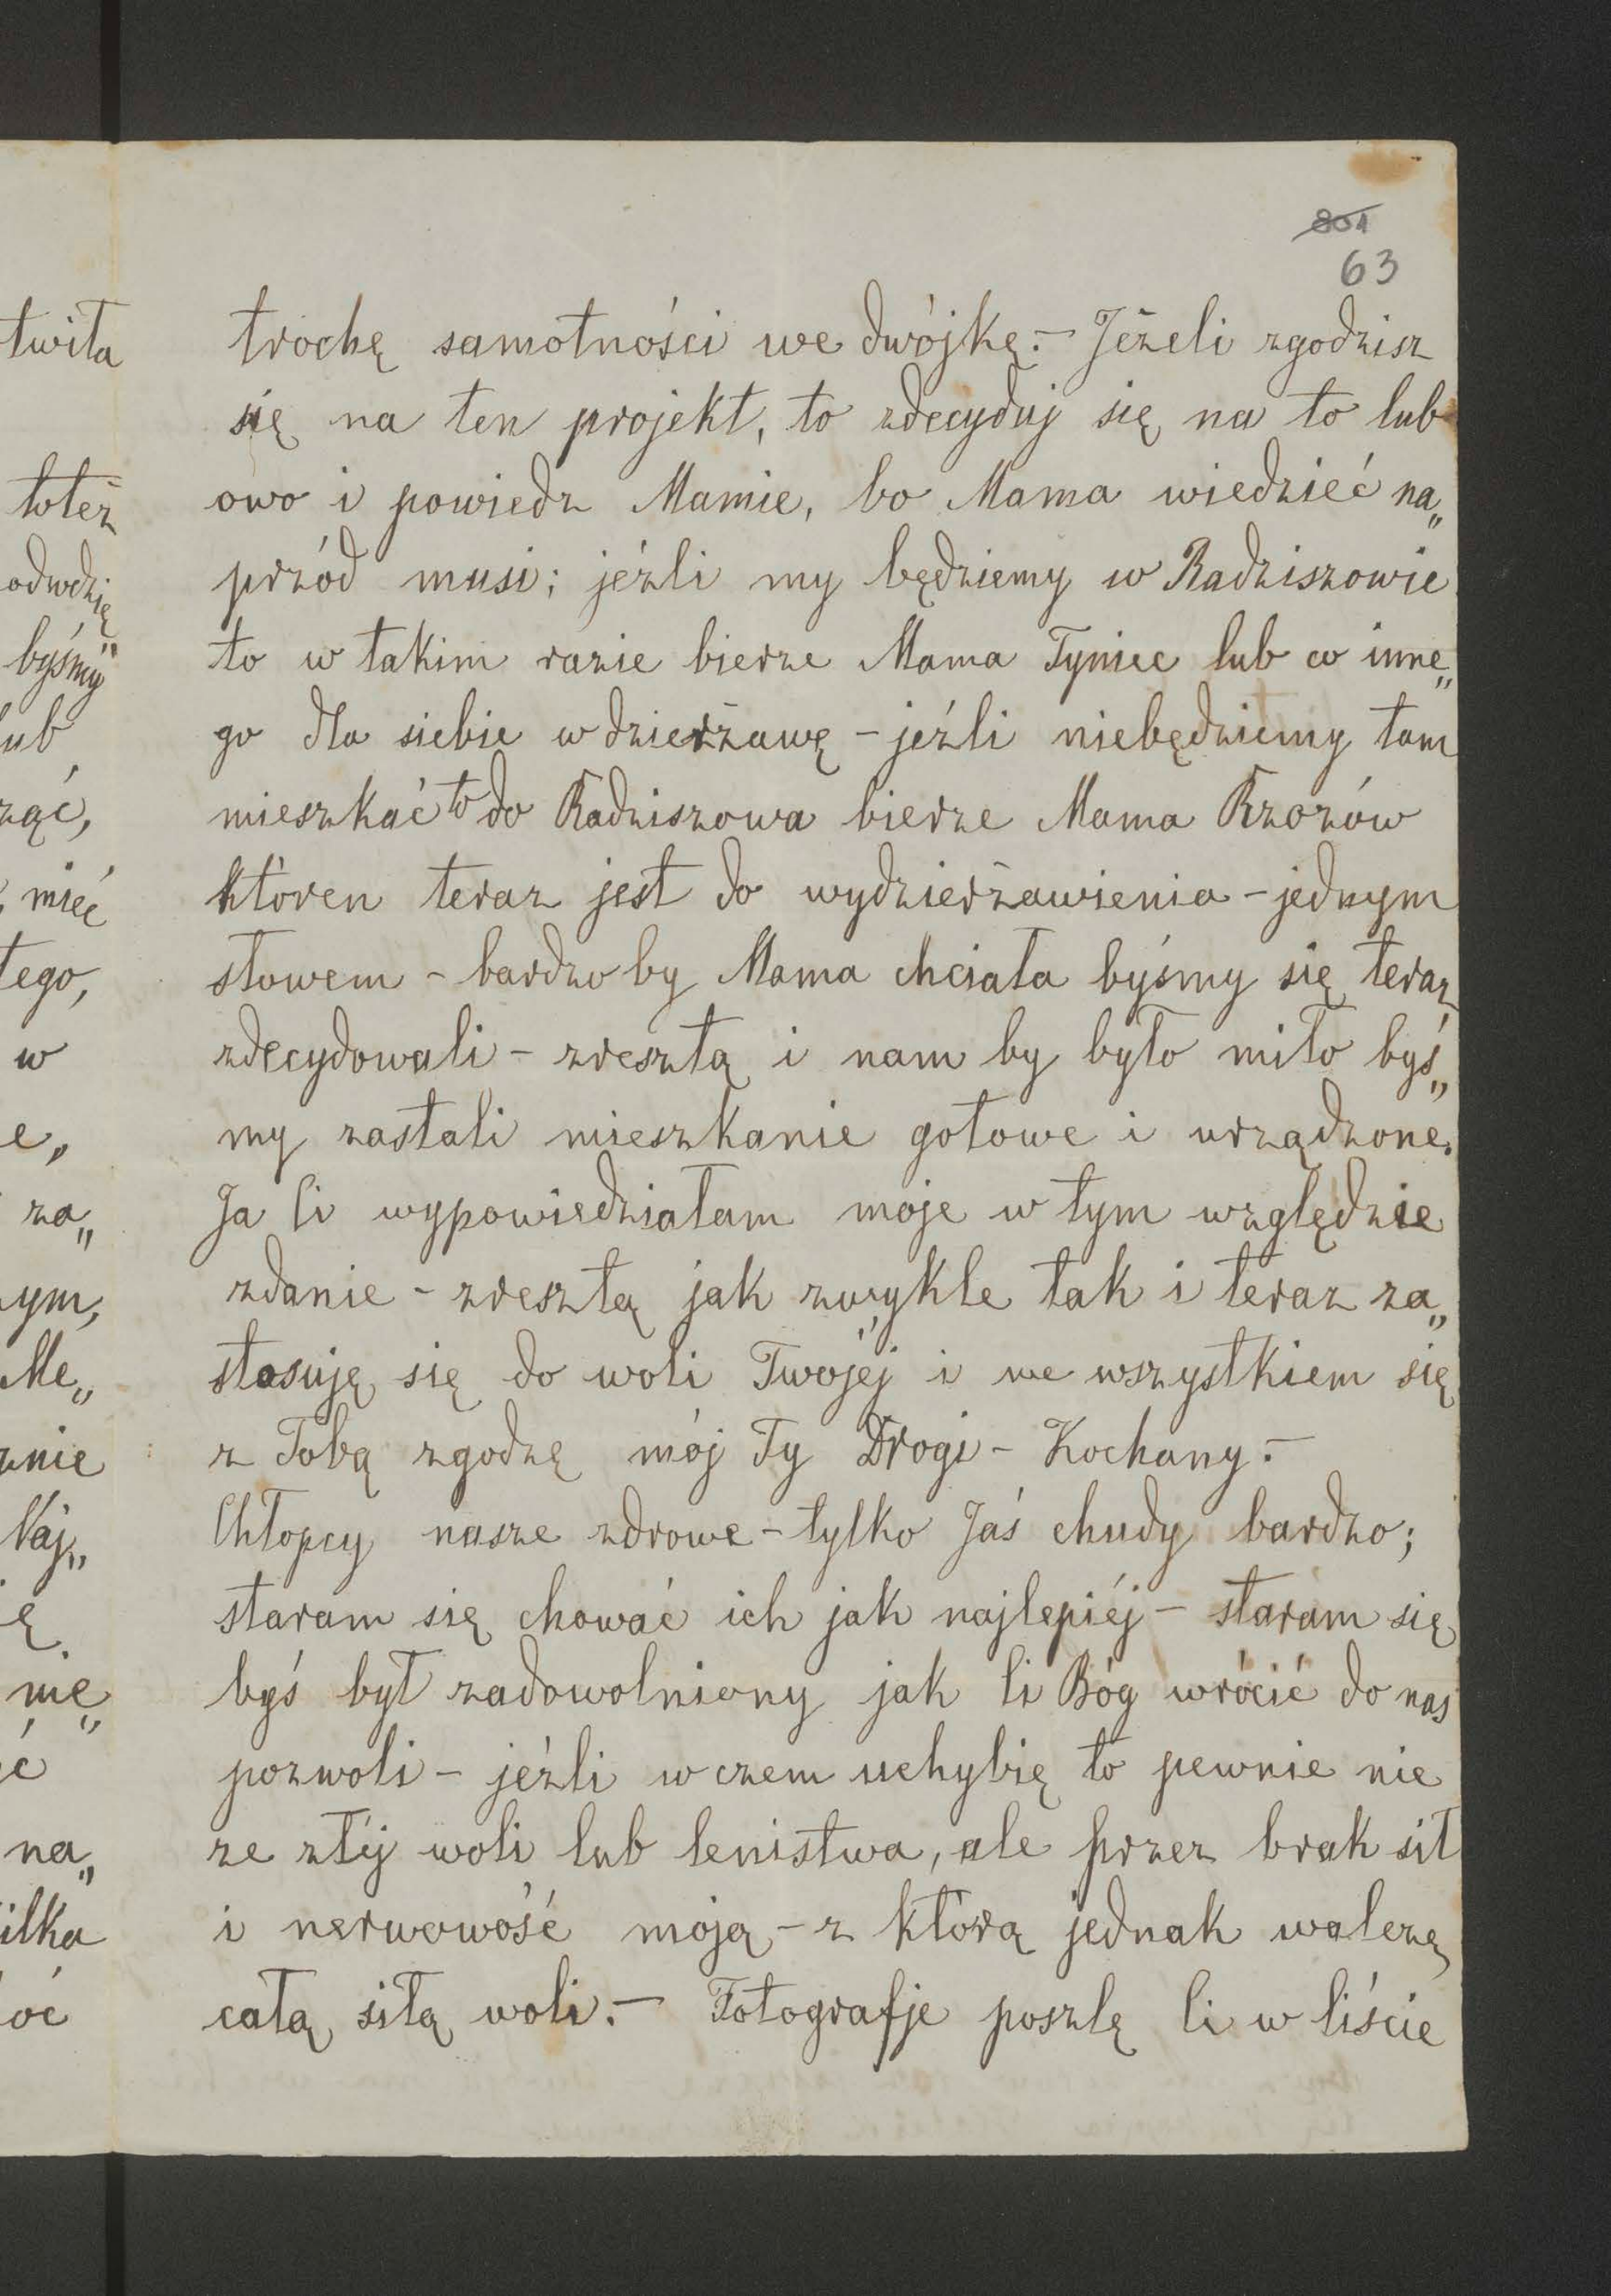 801
63
trochę samotności we dwójkę.– Jeżeli zgodzisz
się na ten projekt, to zdecyduj się na to lub
owo i powiedz Mamie, bo Mama wiedzieć na„
przód musi; jeźli my będziemy w Radziszowie
to w takim razie bierze Mama Tyniec lub co inne„
go dla siebie w dzierżawę – jeźli niebędziemy tam
mieszkać to do Radziszowa bierze Mama Rzozów
któren teraz jest do wydzierżawienia – jednym
słowem – bardzo by Mama chciała byśmy się teraz
zdecydowali – zresztą i nam by było miło byś„
my zastali mieszkanie gotowe i urządzone.
Ja Ci wypowiedziałam moje w tym względzie
zdanie – zresztą jak zwykle tak i teraz za„
stosuję się do woli Twojéj i we wszystkiem się
z Tobą zgodzę mój Ty Drogi – Kochany.–
Chłopcy nasze zdrowe – tylko Jaś chudy bardzo;
staram się chować ich jak najlepiéj – staram się
byś był zadowolniony jak Ci Bóg wrócić do nas
pozwoli – jeźli w czem uchybię to pewnie nie
ze złéj woli lub lenistwa, ale przez brak sił
i nerwowość moją – z którą jednak walczę
całą siłą woli.– Fotografje poszlę Ci w liście
twiła
toteż
odwdzię„
byśmy
lub
ząć,
mieć
tego,
w
e,
za„
ym,
Me„
znie
Naj„
ę
nie„
ć
na„
ilka
oć